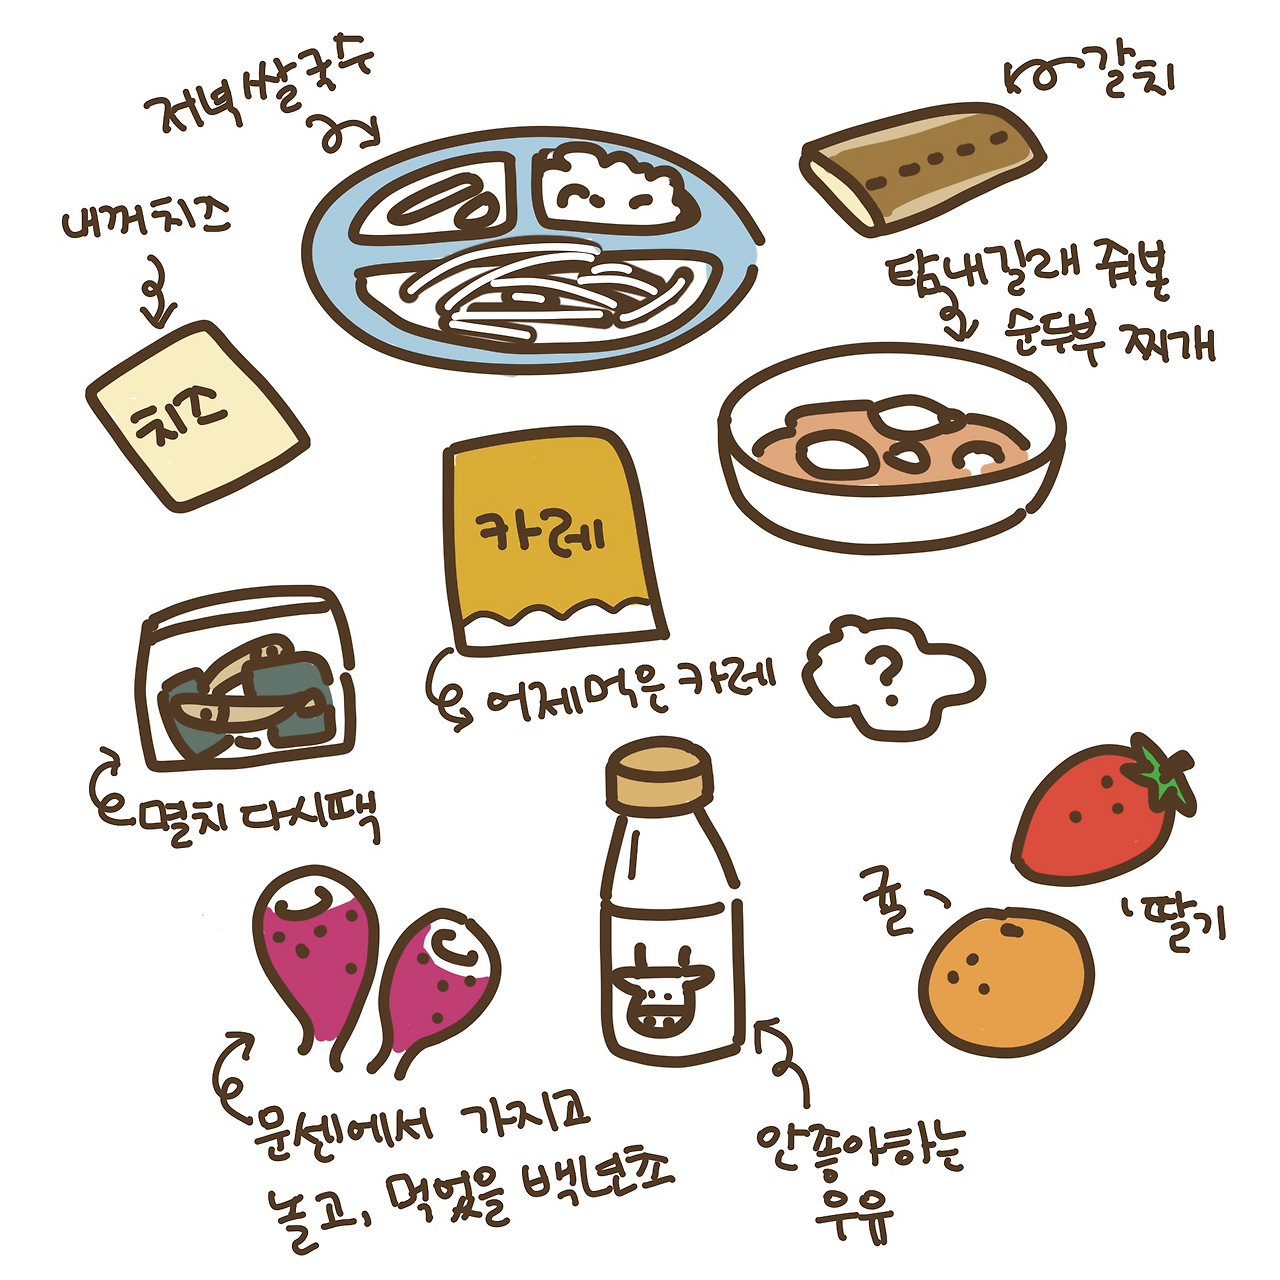 저녁 쌀국수
갈치
내꺼 치즈
탐내길래 줘본
순두부 찌개
치즈
카레
어제 먹은 카레
?
멸치 다시팩
귤
딸기
문센에서 가지고
놀고, 먹었을 백년초
안좋아하는
우유